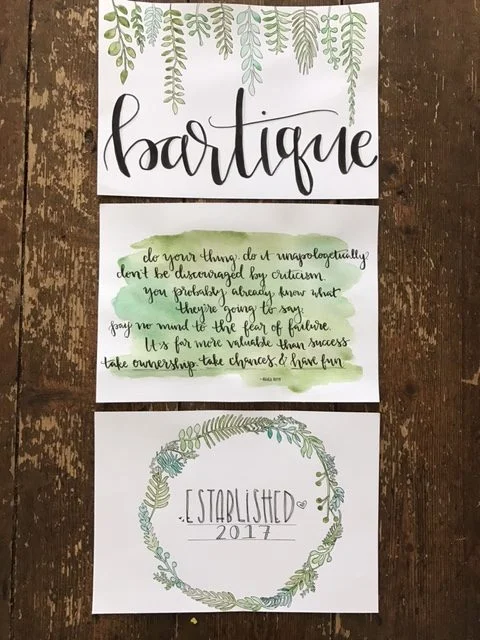 bartique
do your thing. do it unapologetically
don't be discouraged by criticism.
you probably already know what
they're going to say.
pay no mind to the fear of failure.
It's far more valuable than success
take ownership, take chances, & have fun
ESTABLISHED
2017